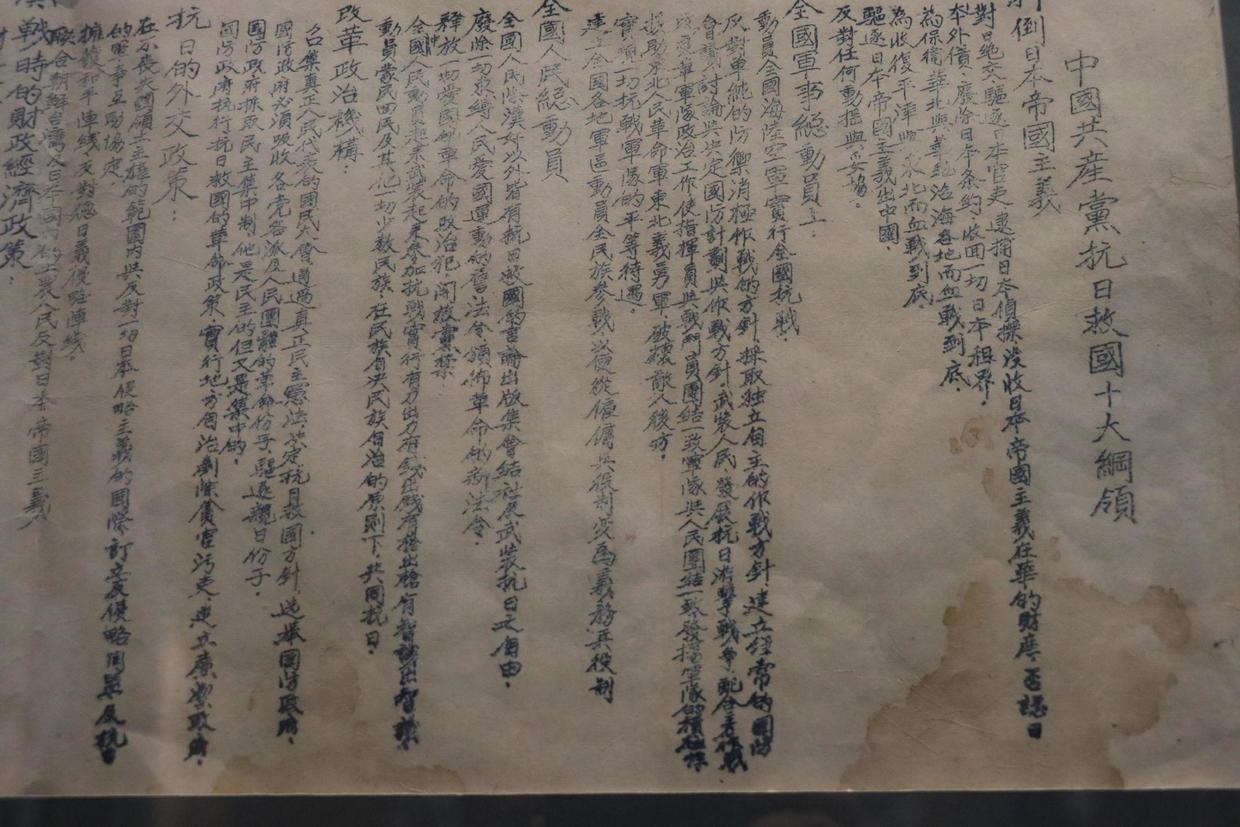 中國共產黨抗日救國十大綱領
倒日本帝國主義
對日絕交驅逐日本官吏逮捕日本偵探沒收日本帝國主義在華的財產否認日
本外債廢除日本條約收回一切日本租界
為保衛華北與華北沿海各地而血戰到底
為收復平津與東北而血戰到底
驅逐日本帝國主義出中國
反對任何動搖與妥協
全國軍事總動員
動員全國海陸空軍實行全國抗戰
反對單純的防禦消極作戰的方針採取独立自主的作戰方針建立經常的國防
會議討論與決定國防計劃與作戰方針武裝人民發展抗日游擊戰爭配合主力作戰
改革軍隊政治工作使指揮員與戰鬥員團結一致軍隊與人民團結一致發揚軍隊的積極性
援助東北民革命軍東北義勇軍破壞敵人後方
實現一切抗戰軍隊的平等待遇
建立全國各地軍區動員全民族參戰以便從僱傭兵役制變為義務兵役制
全國人民總動員
全國人民除漢奸以外皆有抗日救國的言論出版集會結社及武裝抗日之自由
廢除一切束縛人民愛國運動的舊法令頒佈革命的新法令
釋放一切愛國的革命的政治犯開放黨禁
全國人民動員起來武裝起來參加抗戰實行有力出力有錢出錢有槍出槍有智識出智識
動員蒙民回民及其他一切少數民族在民族自決民族自治的原則下共同抗日
改革政治機構
召集真正人民代表的國民大會通過真正民主憲法決定抗日救國方針選舉國防政府
國防政府必須吸收各党各派及人民團體的革命份子驅逐親日份子
國防政府採取民主集中制他是民主的但又是集中的
國防政府執行抗日救國的革命政策實行地方自治剷除貪官污吏建立廉潔政府
抗日的外交政策：
在不喪失國領土主權的範圍內與反對一切日本侵略主義的國際訂立反侵略同盟及抗日
的軍事互助協定
擁護和平陣線反對德日義侵略陣線
聯合朝鮮台灣及日本國內的工農人民反對日本帝國主義
戰時的財政經濟政策：